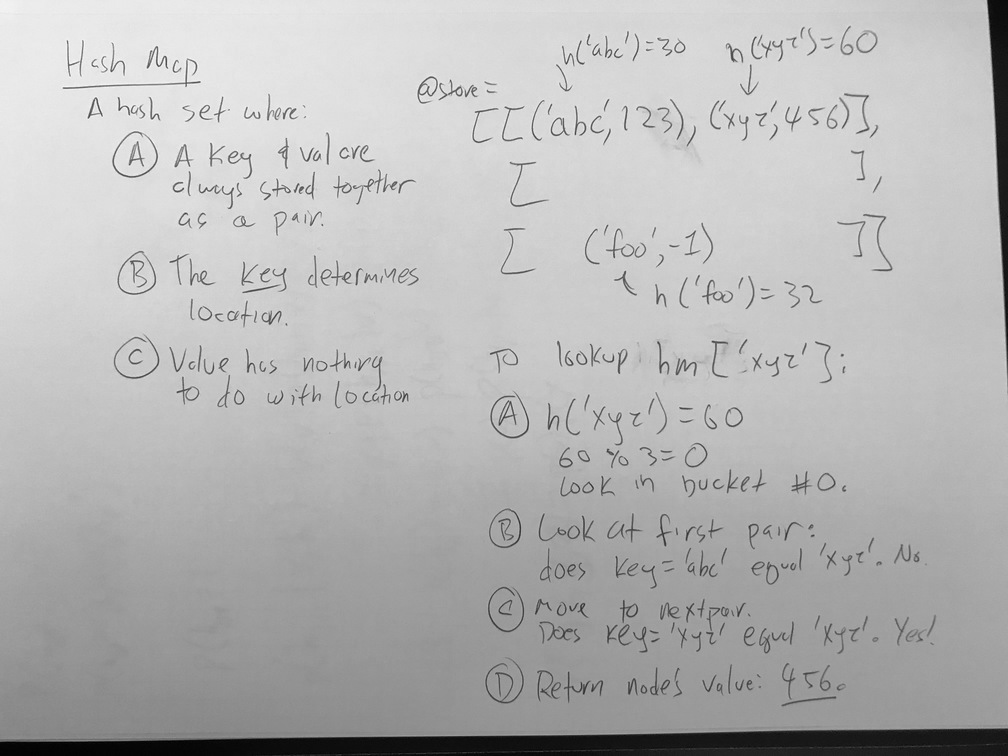 Hash Map
A hash set where:
(A) A key & val are
always stored together
as a pair.
(B) The key determines
location.
(C) Value has nothing
to do with location
h('abc')=30 h('xyz')=60
@store=
[[('abc', 123), ('xyz', 456)],
[ ],
[ ('foo', -1) ]]
h('foo')=32
To lookup hm['xyz']:
(A) h('xyz')=60
60 % 3=0
Look in bucket #0.
(B) Look at first pair:
does key='abc' equal 'xyz'. No.
(C) Move to next pair.
Does key='xyz' equal 'xyz'. Yes!
(D) Return node's value: 456.